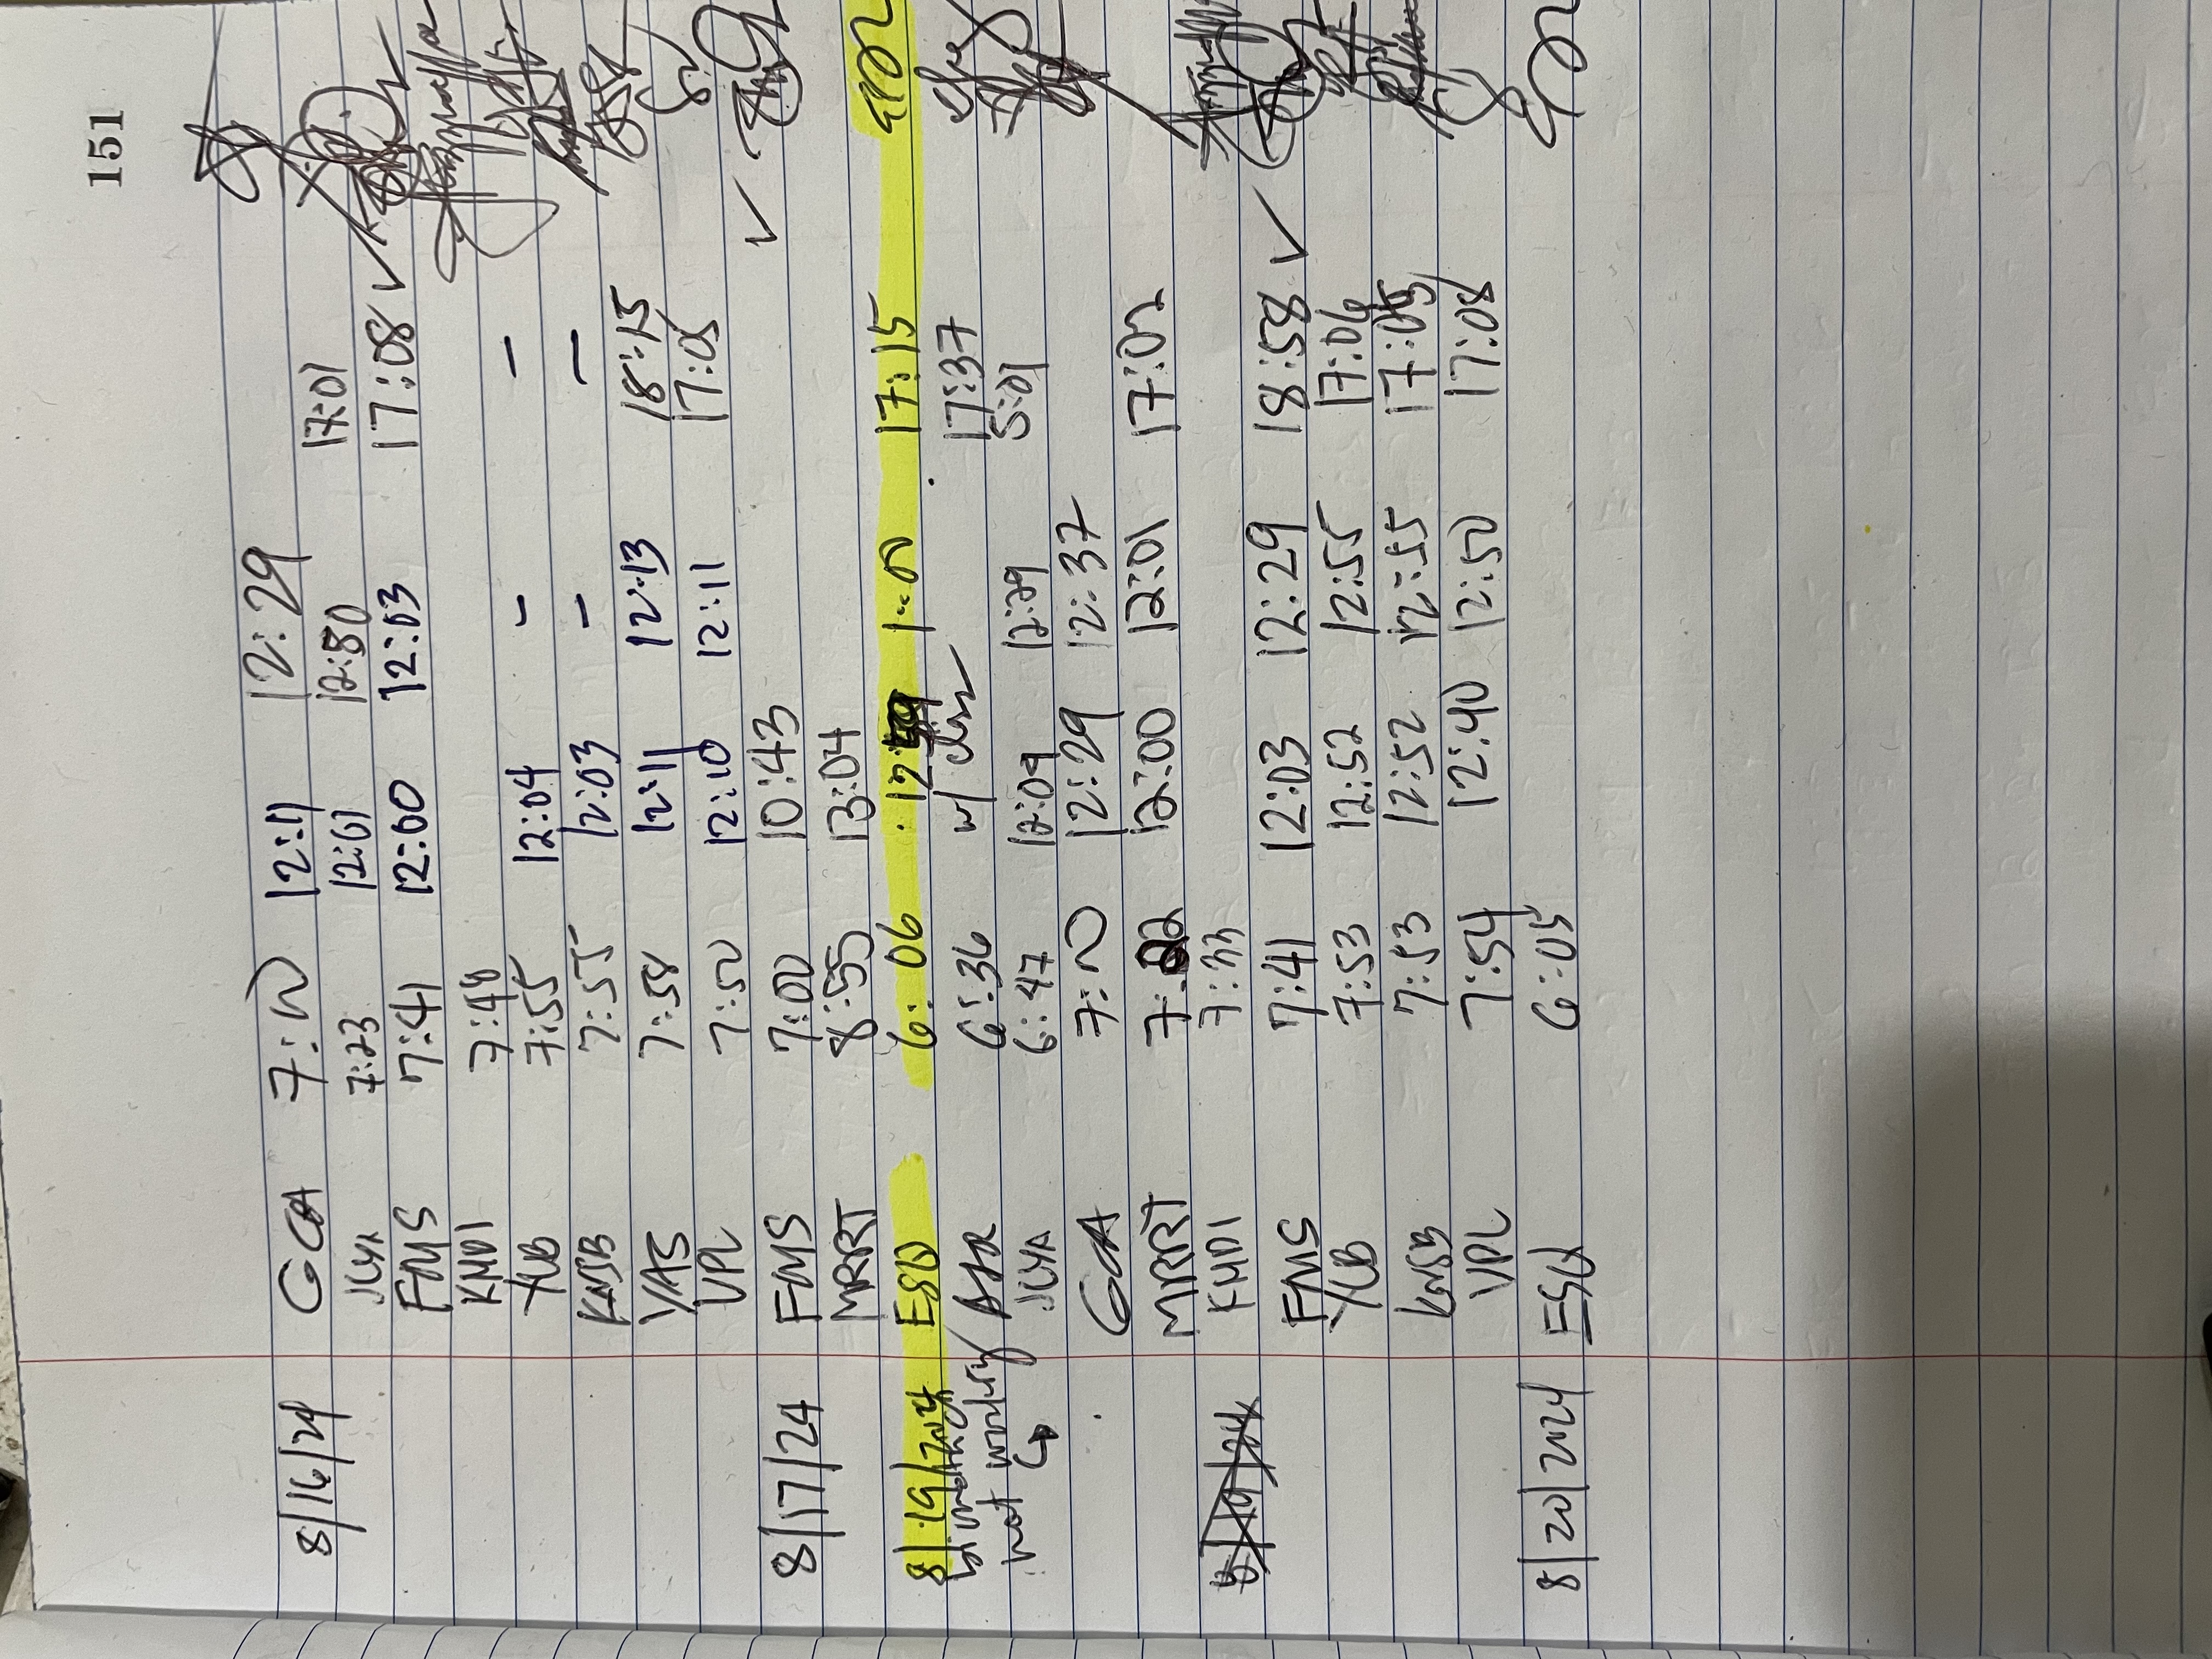 151
8/16/24 GCA 7:20 12:11 12:29
JCYA 7:23 12:01 12:50 17:01
FMS 7:41 12:00 12:03 17:08 ✓
KMDI 7:48
YLB 7:55 12:04 - -
KMSB 7:55 12:03 - -
YAS 7:58 12:11 12:13 18:15
VPL 7:50 12:10 12:11 17:05
8/17/24 FMS 7:00 10:43 ✓
MRRT 8:55 13:04
8/19/2024 ESD 6:06 1:00 17:15
biometric not working 6:36 w/ 17:37
↳ JCYA 6:47 12:09 12:29 5:01
GCA 7:20 12:29 12:37
MRRT 7:22 12:00 12:01 17:02
KMDI 7:33
FMS 7:41 12:03 12:29 18:58 ✓
YLB 7:53 12:52 12:55 17:06
KMSB 7:53 12:52 12:55 17:05
VPL 7:54 12:40 12:50 17:08
8/20/2024 ESD 6:05